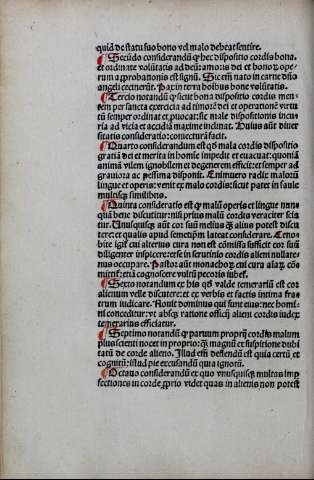 quid de statu suo bono vel malo debeat sentire.
Secūdo considerandū ꝙ hec dispositio cordis bona.
et ordinate volūtatis ad deū: amoris dei et bonoꝝ ope
rum approbationis est signū. Sic em̄ nato in carne dño
angeli cecinerūt. Pax in terra hoībus bone volūtatis.
Tercio notandū ꝙ sicut bona dispositio cordis men
tem per sancta exercicia ad timorē dei et operationē virtu
tū semper ordinat et ꝓuocat: sic male dispositionis incu
ria ad vicia et accidiā maxime inclinat. Huius aūt diuer
sitatis consideratio: conuersiōeꝫ facit.
Quarto considerandum est ꝙ mala cordis dispositio
gratiā dei et merita in homīe impedit et euacuat: quoniā
animā vilem ignobilem et degenerem efficit: et semper ad
grauiora ac pessima disponit. Enimuero radix maloꝝ
lingue et operis: venit ex malo cordis: sicut patet in saule
multisqꝫ similibus.
Quinta consideratio est ꝙ malū operis et lingue nun
quā bene discutitur: nisi prius malū cordis veraciter scia
tur. Unusquisqꝫ aūt cor suū melius ꝙ̄ alius potest discu
tere: et qualis apud semetipsm̄ lateat considerare. Ceno
bite igit̄ cui alterius cura non est cōmissa sufficit cor suū
diligenter inspicere: et se in scrutinio cordis alieni nullate
nus occupare. Pastor aūt monachoꝝ cui cura aīaꝝ cō
mittit̄: etiā cognoscere vultū pecoris iubet̄.
Sexto notandum ex his ꝙ valde temerariū est cor
alienum velle discutere: et ex verbis et factis intima fra
trum iudicare. Nouit dominus qui sunt eius: nec homi
ni conceditur: vt absqꝫ ratione officij alieni cordis iudex
temerarius efficiatur.
Septimo notandū ꝙ paruum proprij cordis malum
plus scienti nocet in proprio: ꝙ̄ magnū et suspitione dubi
tatū de corde alieno. Illud em̄ deflendū est quia certū et
cognitū: istud pie excusandū quia ignotū.
Octauo considerandū ex quo vnusquisqꝫ multas im
ꝑfectiones in corde ꝓprio videt quas in alienis non potest